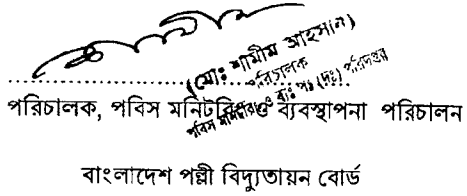 (মোঃ শামীম আহসান)
পরিচালক
পবিস মনিটরিং ও ব্যঃ পঃ (দঃ) পরিদপ্তর
পরিচালক, পবিস মনিটরিং ও ব্যবস্থাপনা পরিচালন
বাংলাদেশ পল্লী বিদ্যুতায়ন বোর্ড